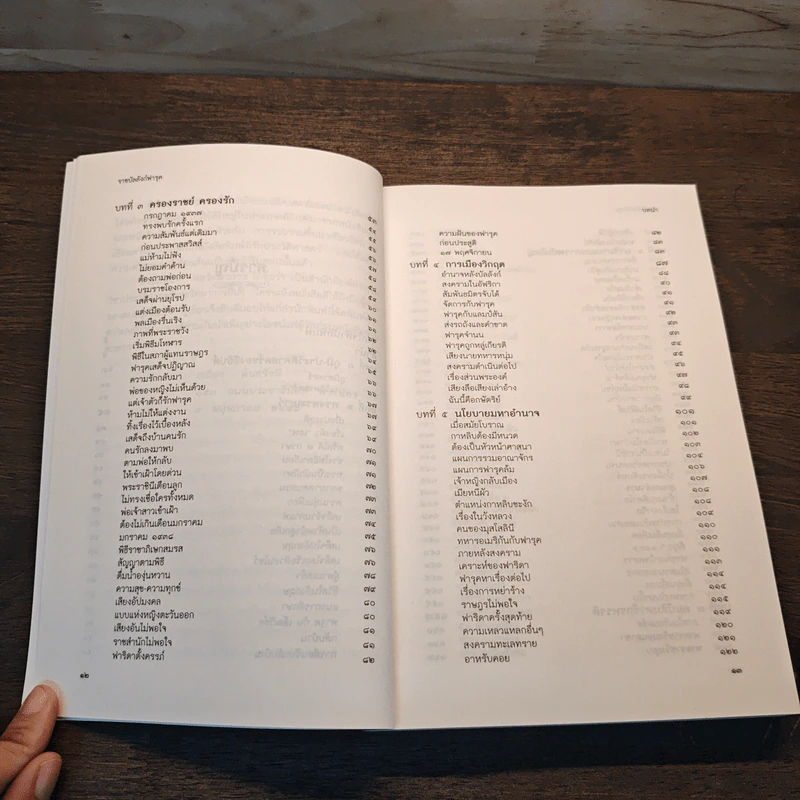 ราชบัลลังก์ฟารุค
บทที่ ๓ ครองราชย์ ครองรัก
กรกฎาคม ๑๙๓๗ ๕๓
ทรงพบรักครั้งแรก
ความสัมพันธ์แต่เดิมมา
ก่อนประพาสสวิสส์
แม่ห้ามไม่ฟัง
ไม่ยอมคำค้าน
ต้องถามพ่อก่อน
บรมราชโองการ
เสด็จผ่านยุโรป
แต่งเมืองต้อนรับ
พลเมืองรื่นเริง
ภาพที่พระราชวัง
เริ่มพิธีมโหฬาร
พิธีในสภาผู้แทนราษฎร
ฟารุคเสด็จปฏิญาณ
ความรักกลับมา
พ่อของหญิงไม่เห็นด้วย
แต่เจ้าตัวก็รักฟารุค
ห้ามไม่ให้แต่งงาน ๖๗
ทิ้งเรื่องไว้เบื้องหลัง
เสด็จถึงบ้านคนรัก ๖๙
คนรักลงมาพบ ๗๐
ตามพ่อให้กลับ ๗๑
ให้เข้าเฝ้าโดยด่วน ๗๑
พระราชินีเตือนลูก ๗๒
ไม่ทรงเชื่อใครทั้งหมด ๗๓
พ่อเจ้าสาวเข้าเฝ้า ๗๓
ต้องไม่เกินเดือนมกราคม ๗๔
มกราคม ๑๙๓๘ ๗๕
พิธีราชาภิเษกสมรส ๗๖
สัญญาตามพิธี ๗๖
ดื่มน้ำองุ่นหวาน ๗๘
ความสุข-ความทุกข์ ๗๙
เสียงอัปมงคล ๘๐
แบบแห่งหญิงตะวันออก ๘๐
เสียงอันไม่พอใจ ๘๑
ราชสำนักไม่พอใจ ๘๑
ฟาริดาตั้งครรภ์ ๘๒
๑๒
บทนำ
ความฝันของฟารุค ๘๒
ก่อนประสูติ ๘๓
๑๗ พฤศจิกายน ๘๓
บทที่ ๔ การเมืองวิกฤต ๘๗
อำนาจหลังบัลลังก์ ๘๘
สงครามในอัฟริกา ๙๐
สัมพันธมิตรจับได้ ๙๑
จัดการกับฟารุค ๙๑
ฟารุคกับแลมป์สัน ๙๒
ส่งรถถังและคำขาด ๙๓
ฟารุคจำนน ๙๓
ฟารุคถูกหลู่เกียรติ ๙๔
เสียงนายทหารหนุ่ม ๙๕
สงครามดำเนินต่อไป ๙๖
เรื่องส่วนพระองค์ ๙๗
เสียงลือเสียงเล่าอ้าง ๙๘
ฉันนี้คือกษัตริย์ ๙๙
บทที่ ๕ นโยบายมหาอำนาจ ๑๐๑
เมื่อสมัยโบราณ ๑๐๑
กาหลิบต้องมีหนวด ๑๐๒
ต้องเป็นหัวหน้าศาสนา ๑๐๓
แผนการรวมอาณาจักร ๑๐๔
แผนการฟารุคล้ม ๑๐๖
เจ้าหญิงกลับเมือง ๑๐๗
เมียหนีผัว ๑๐๘
ตำแหน่งกาหลิบชะงัก ๑๐๘
เรื่องในวังหลวง ๑๐๙
คนของมุสโสลินี ๑๑๐
ทหารอเมริกันกับฟารุค ๑๑๐
ภายหลังสงคราม ๑๑๑
เคราะห์ของฟาริดา ๑๑๓
ฟารุคหาเรื่องต่อไป ๑๑๔
เรื่องการหย่าร้าง ๑๑๔
ราษฎรไม่พอใจ ๑๑๕
ฟาริดาครั้งสุดท้าย ๑๑๙
ความเหลวแหลกอื่นๆ ๑๒๐
สงครามทะเลทราย ๑๒๑
อาหรับคอย ๑๒๒
๑๓